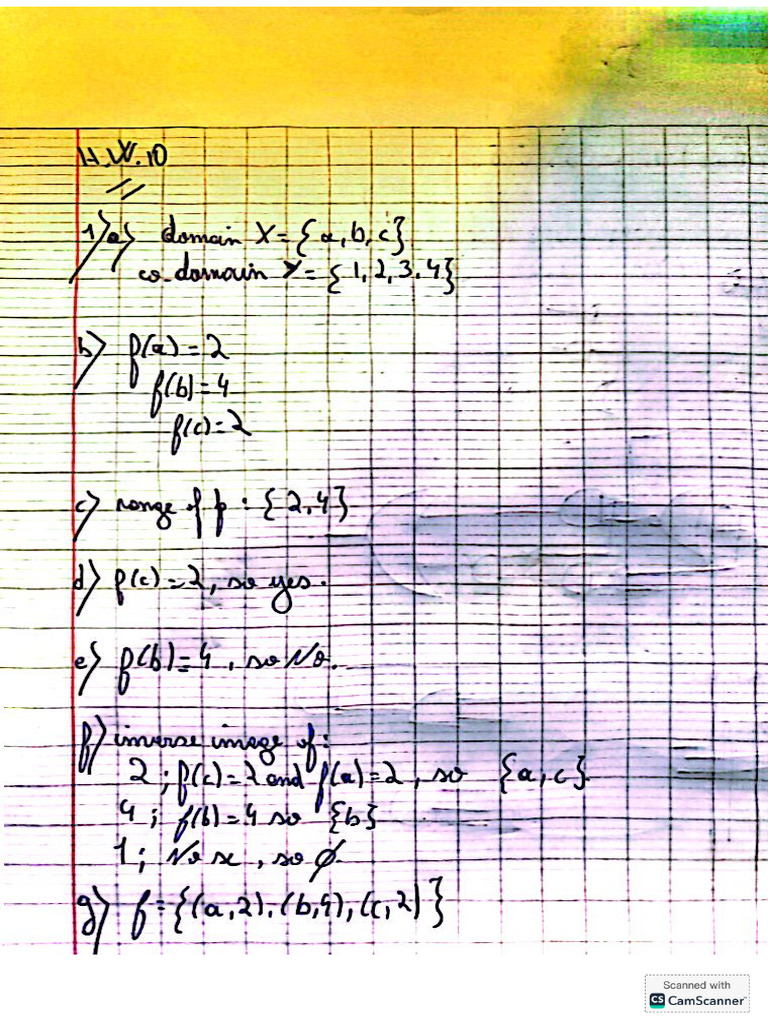 H.W.10
1) a) domain X = {a, b, c}
co-domain Y = {1, 2, 3, 4}
b) f(a) = 2
f(b) = 4
f(c) = 2
c) range of f : {2, 4}
d) f(c) = 2, so yes.
e) f(b) = 4, so No.
f) inverse image of:
2 ; f(c) = 2 and f(a) = 2, so {a, c}
4 ; f(b) = 4 so {b}
1 ; No x, so ∅
g) f = {(a, 2), (b, 4), (c, 2)}
Scanned with
CS CamScanner